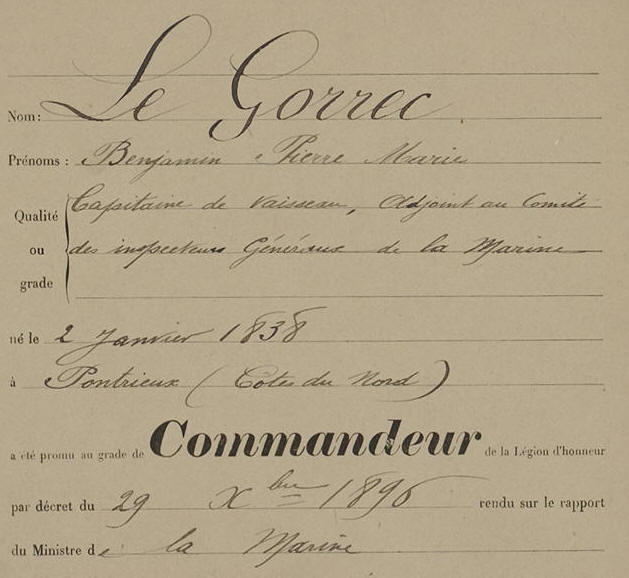 Nom: Le Gorrec
Prénoms : Benjamin Pierre Marie
Qualité ou grade Capitaine de Vaisseau, Adjoint au Comité
des inspecteurs Généraux de la Marine
né le 2 Janvier 1838
à Pontrieux (Côtes du Nord)
a été promu au grade de Commandeur de la Légion d'honneur
par décret du 29 Xbre 1896 rendu sur le rapport
du Ministre de la Marine